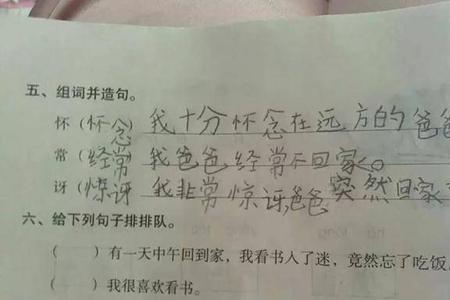 五、组词并造句。
怀（怀念）我十分怀念在远方的爸爸
常（经常）我爸爸经常不回家。
讶（惊讶）我非常惊讶,爸爸突然回家
六、给下列句子排排队。
（ ）有一天中午回到家，我看书入了迷，竟然忘了吃饭
（ ）我很喜欢看书。